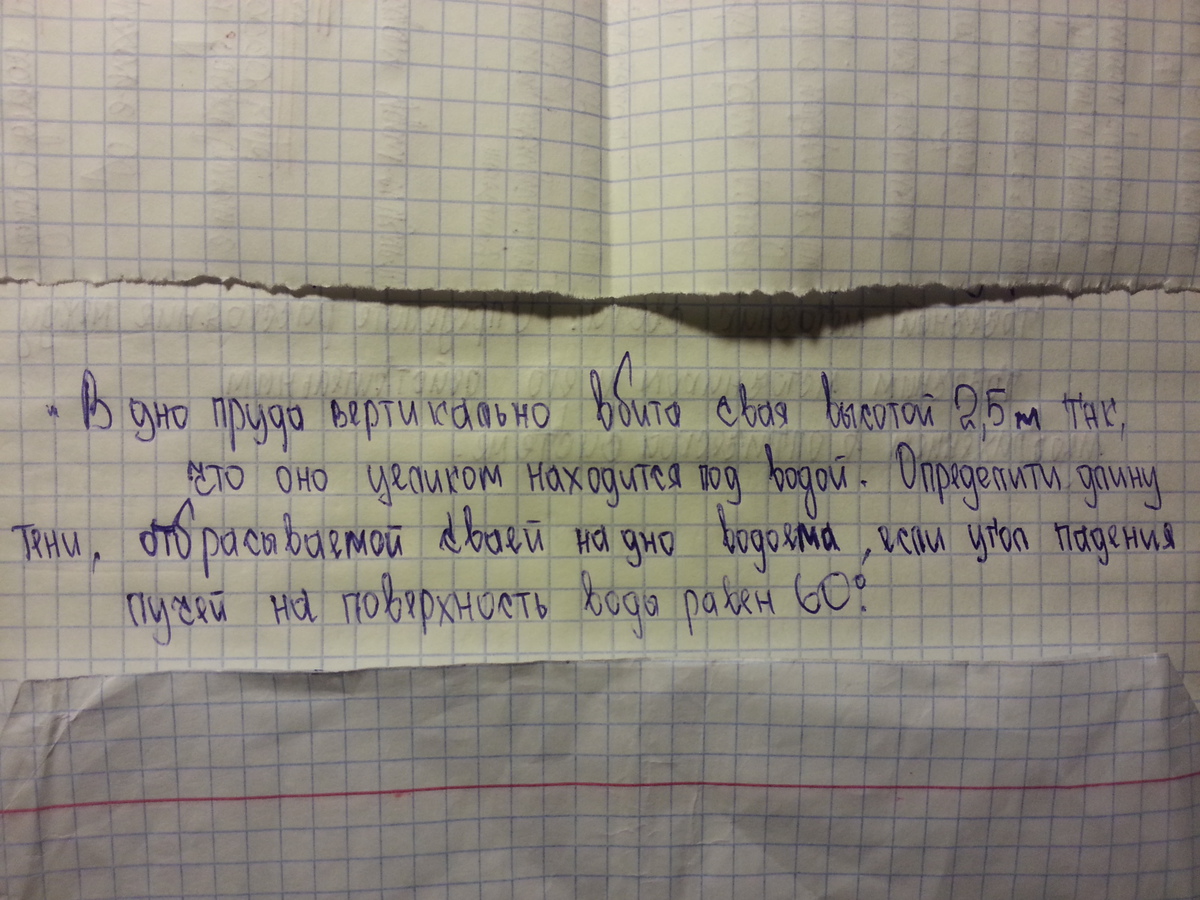 В дно пруда вертикально вбита свая высотой 2,5 м так,
что оно целиком находится под водой. Определити длину
тени, отбрасываемой сваей на дно водоема, если угол падения
лучей на поверхность воды равен 60°.